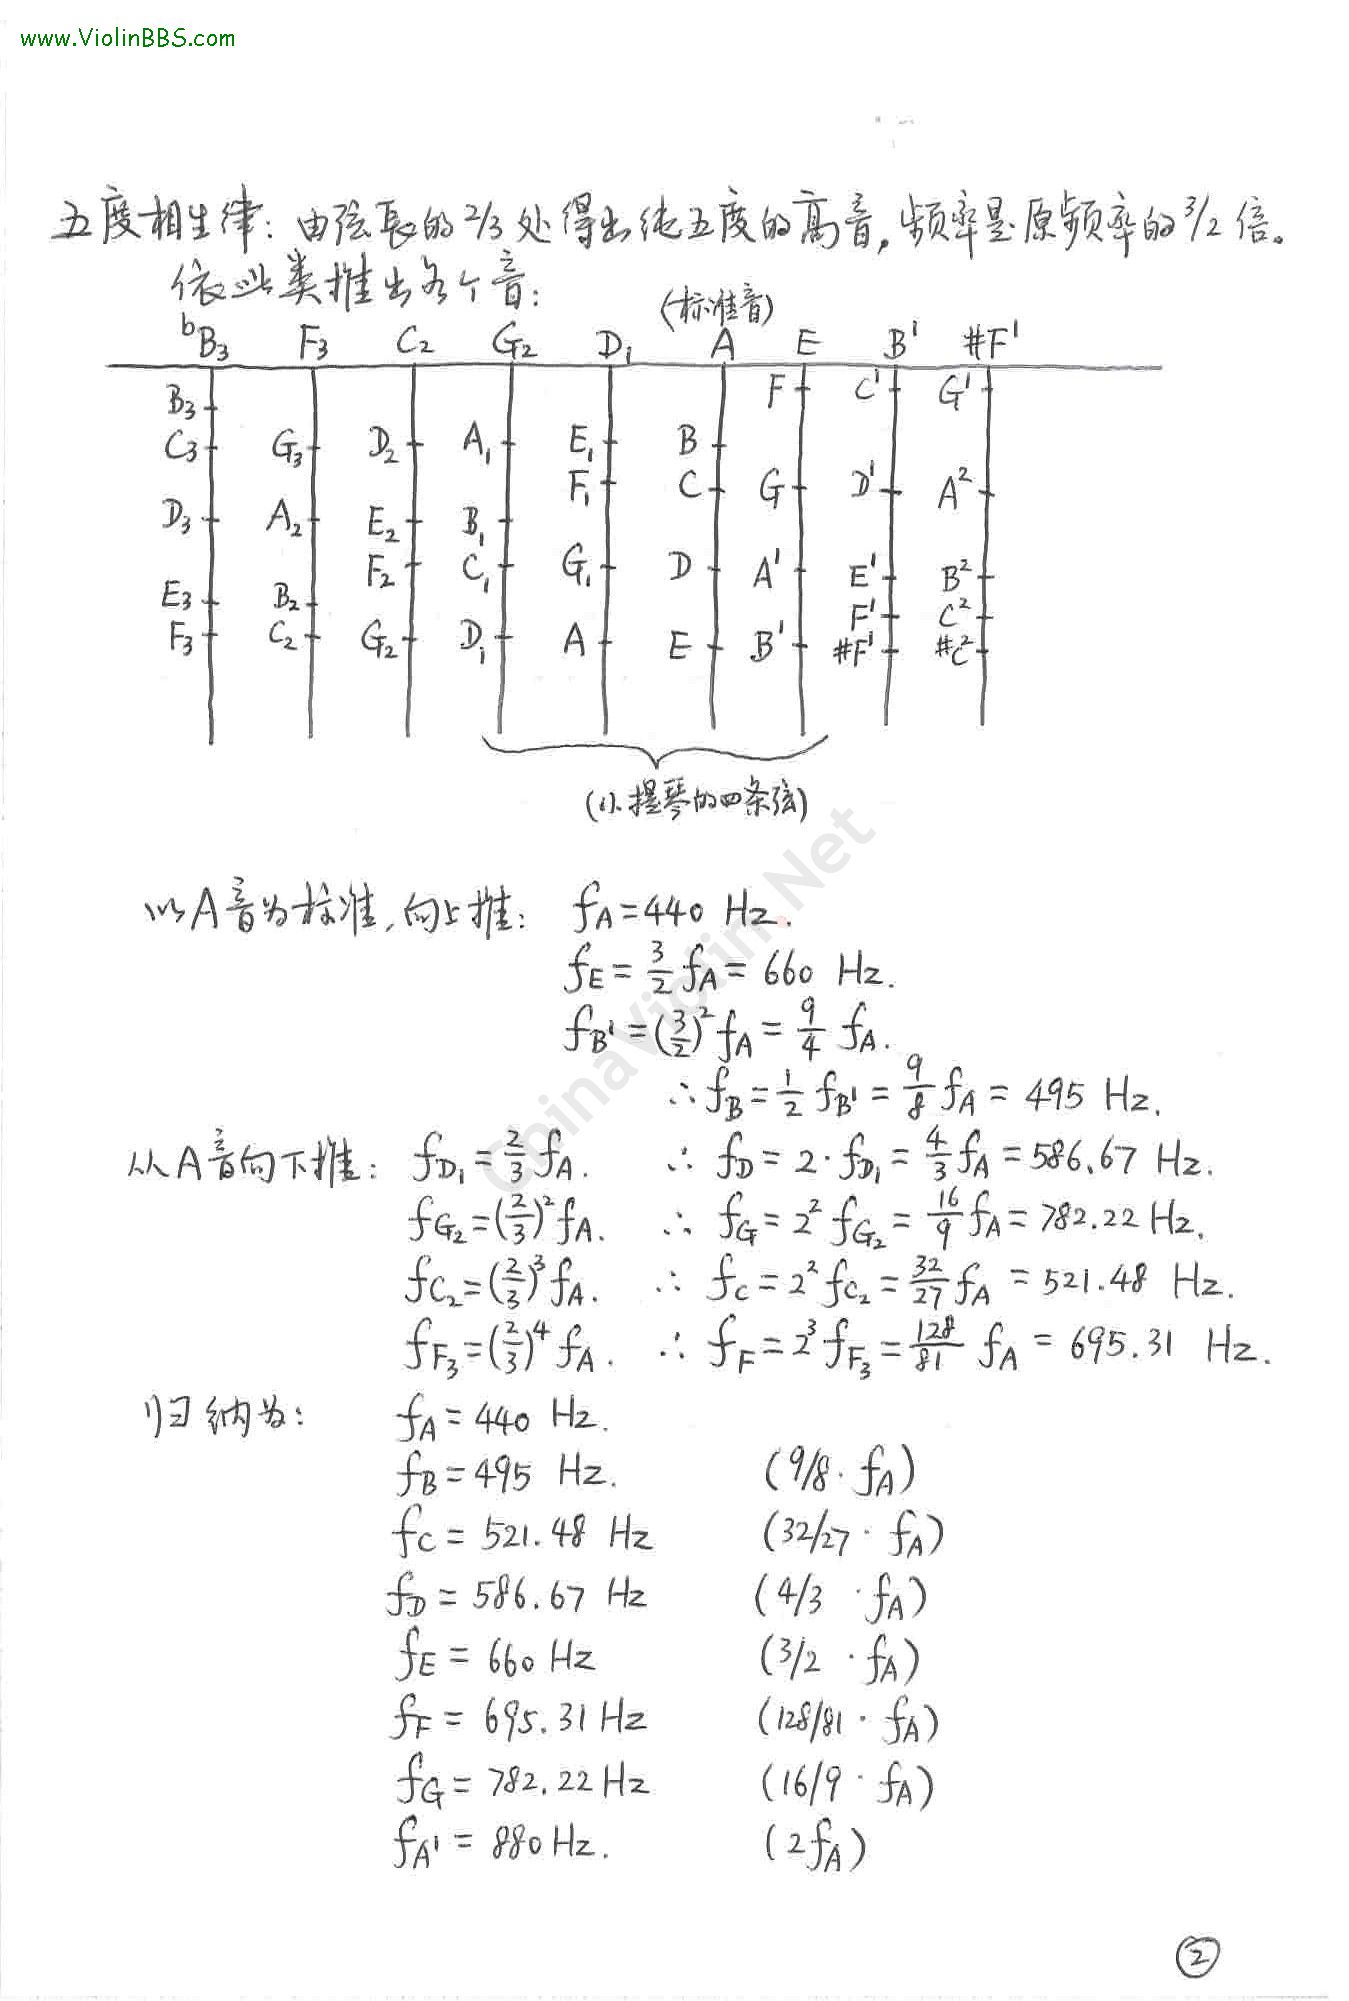 www.ViolinBBS.com
五度相生律: 由弦長的 2/3 处得出纯五度的高音, 频率是原频率的 3/2 倍。
依此类推出各个音:
(标准音)
ᵇB₃ F₃ C₂ G₂ D₁ A E B' #F'
F C' G'
B₃
C₃ G₃ D₂ A₁ E₁ B
F₁ C G D' A²
D₃ A₂ E₂ B₁
F₂ C₁ G₁ D A' E' B²
E₃ B₂ F' C²
F₃ C₂ G₂ D₁ A E B' #F' #C²
(小提琴的四条弦)
以A音为标准, 向上推: f_A = 440 Hz.
f_E = 3/2 f_A = 660 Hz.
f_B' = (3/2)² f_A = 9/4 f_A.
∴ f_B = 1/2 f_B' = 9/8 f_A = 495 Hz.
从A音向下推: f_D₁ = 2/3 f_A. ∴ f_D = 2·f_D₁ = 4/3 f_A = 586.67 Hz.
f_G₂ = (2/3)² f_A. ∴ f_G = 2² f_G₂ = 16/9 f_A = 782.22 Hz.
f_C₂ = (2/3)³ f_A. ∴ f_C = 2² f_C₂ = 32/27 f_A = 521.48 Hz.
f_F₃ = (2/3)⁴ f_A. ∴ f_F = 2³ f_F₃ = 128/81 f_A = 695.31 Hz.
归纳为: f_A = 440 Hz.
f_B = 495 Hz. (9/8 · f_A)
f_C = 521.48 Hz (32/27 · f_A)
f_D = 586.67 Hz (4/3 · f_A)
f_E = 660 Hz (3/2 · f_A)
f_F = 695.31 Hz (128/81 · f_A)
f_G = 782.22 Hz (16/9 · f_A)
f_A' = 880 Hz. (2f_A)
②
ChinaViolin.Net